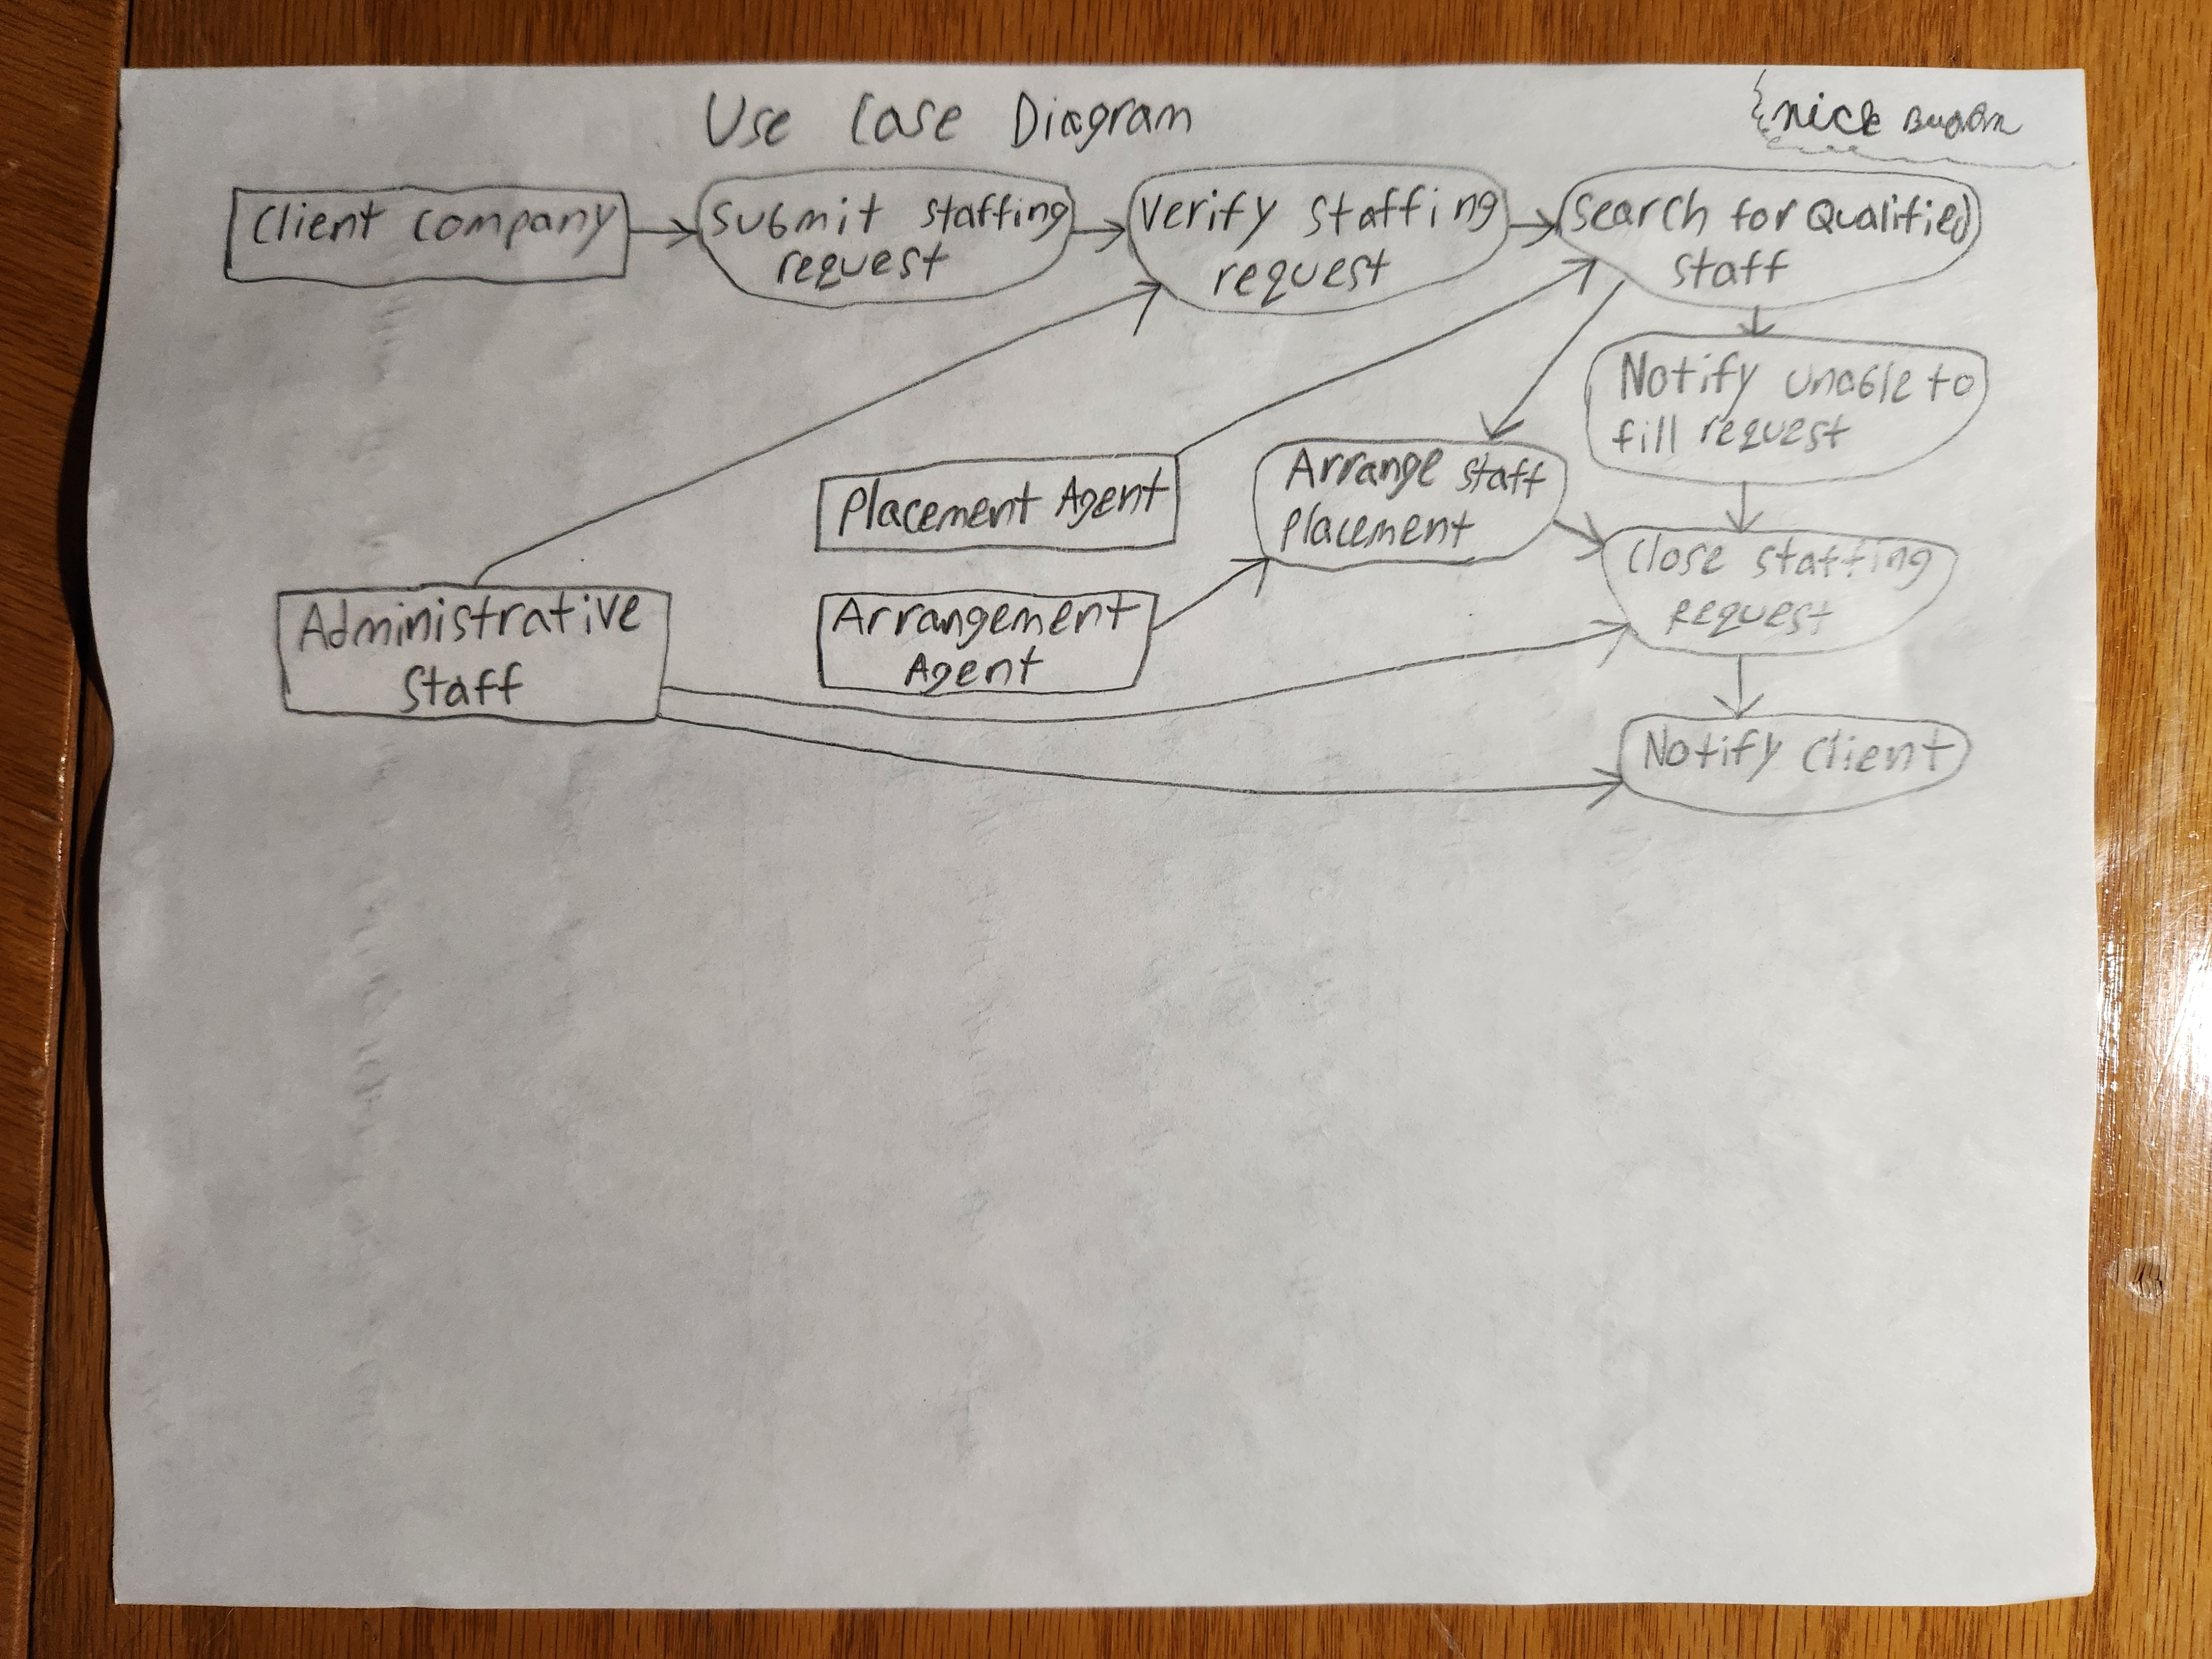 Use Case Diagram
nick
Client Company
Submit staffing
request
Verify Staffing
request
Search for Qualified
staff
Notify unable to
fill request
Placement Agent
Arrange staff
Placement
Close staffing
Request
Administrative
Staff
Arrangement
Agent
Notify Client